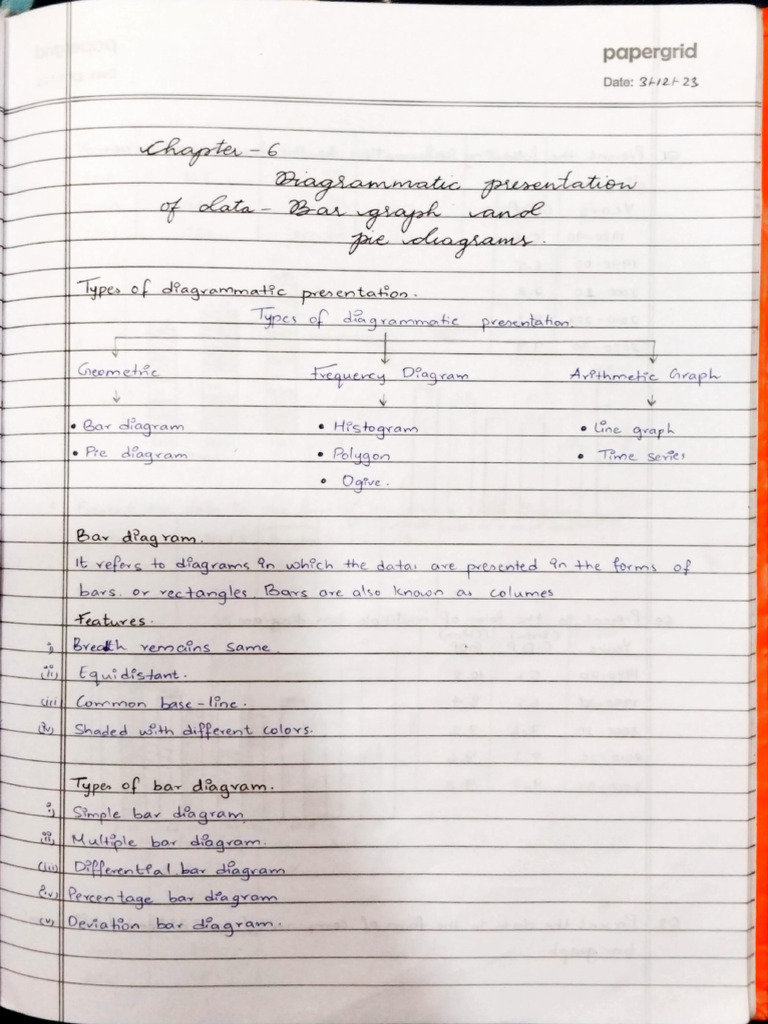 papergrid
Date: 31-12-23
Chapter - 6
Diagrammatic presentation
of data - Bar graph and
pie diagrams.
Types of diagrammatic presentation.
Types of diagrammatic presentation.
Geometric Frequency Diagram Arithmetic Graph
• Bar diagram • Histogram • Line graph
• Pie diagram • Polygon • Time series
• Ogive.
Bar diagram.
It refers to diagrams in which the data, are presented in the forms of
bars. or rectangles. Bars are also known as columes
Features.
i) Breath remains same.
(ii) Equidistant.
(iii) Common base-line.
(iv) Shaded with different colors.
Types of bar diagram.
i) Simple bar diagram,
ii, Multiple bar diagram.
(iii) Differential bar diagram
(iv) Percentage bar diagram
(v) Deviation bar diagram.